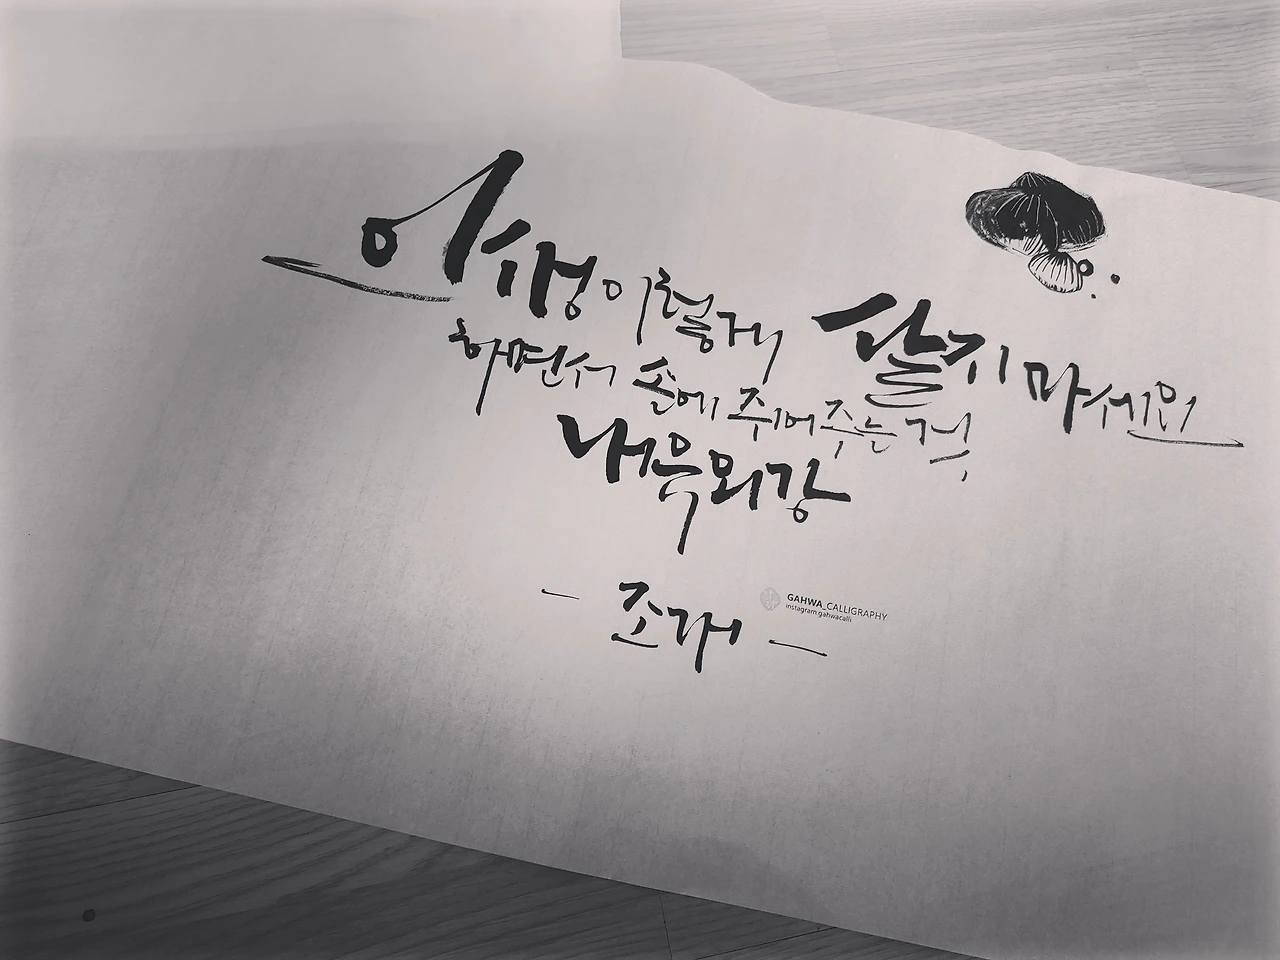 인생 이렇게 살지 마세요
하면서 손에 쥐어주는 것,
내유외강
- 조개 -
GAHWA_CALLIGRAPHY
instagram gahwacalli